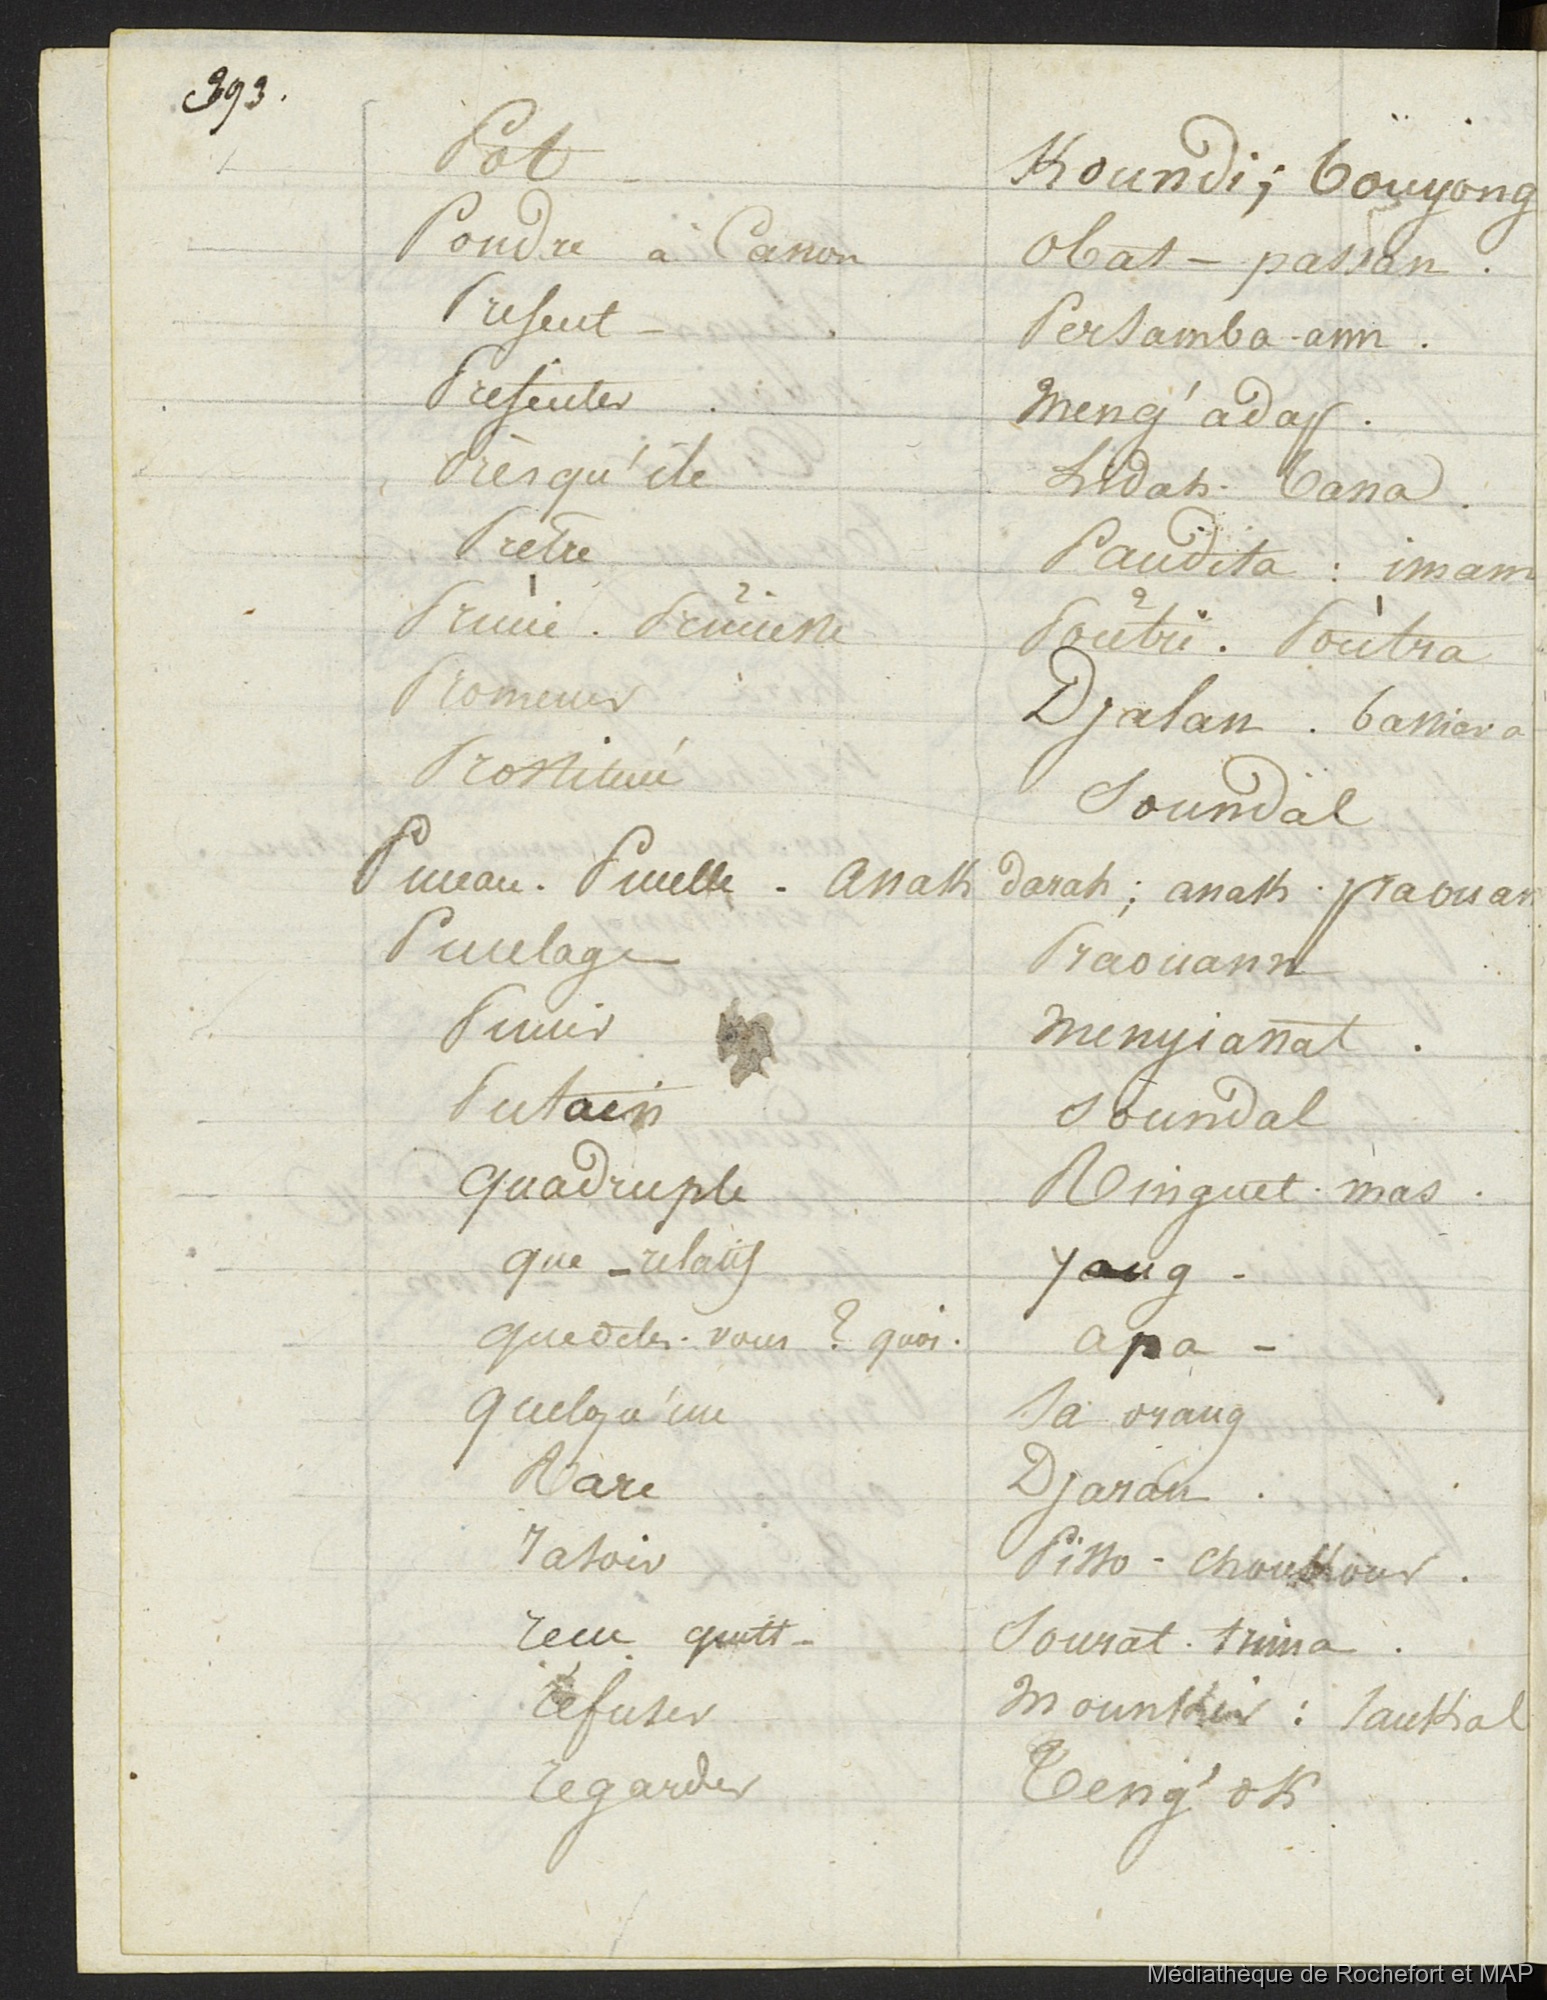 393.
Pot - Koundi; bouyong
Poudre à Canon Obat - passan.
Présent - Persamba-ann.
Présenter. Meng'adap.
Presqu'ile Lidah. Tana.
Prêtre Paudita : imam
Prince. Princesse Poutri. Poutra
1 2 2 1
Promener Djalan.
Prostitué Soundal
Puceau. Pucelle - anak darah; anak praouan
Pucelage Praouann
Punir Menyianat.
Putain Soundal
quadruple Ringuet. mas.
que - relatif yang -
que dites-vous? quoi. apa -
quelqu'un sa orang
Rare Djaran.
rasoir Pisso - choukour.
recu quitt- Sourat. trima.
réfuser Mounkir : sankal
regarder Teng'ok
Médiathèque de Rochefort et MAP